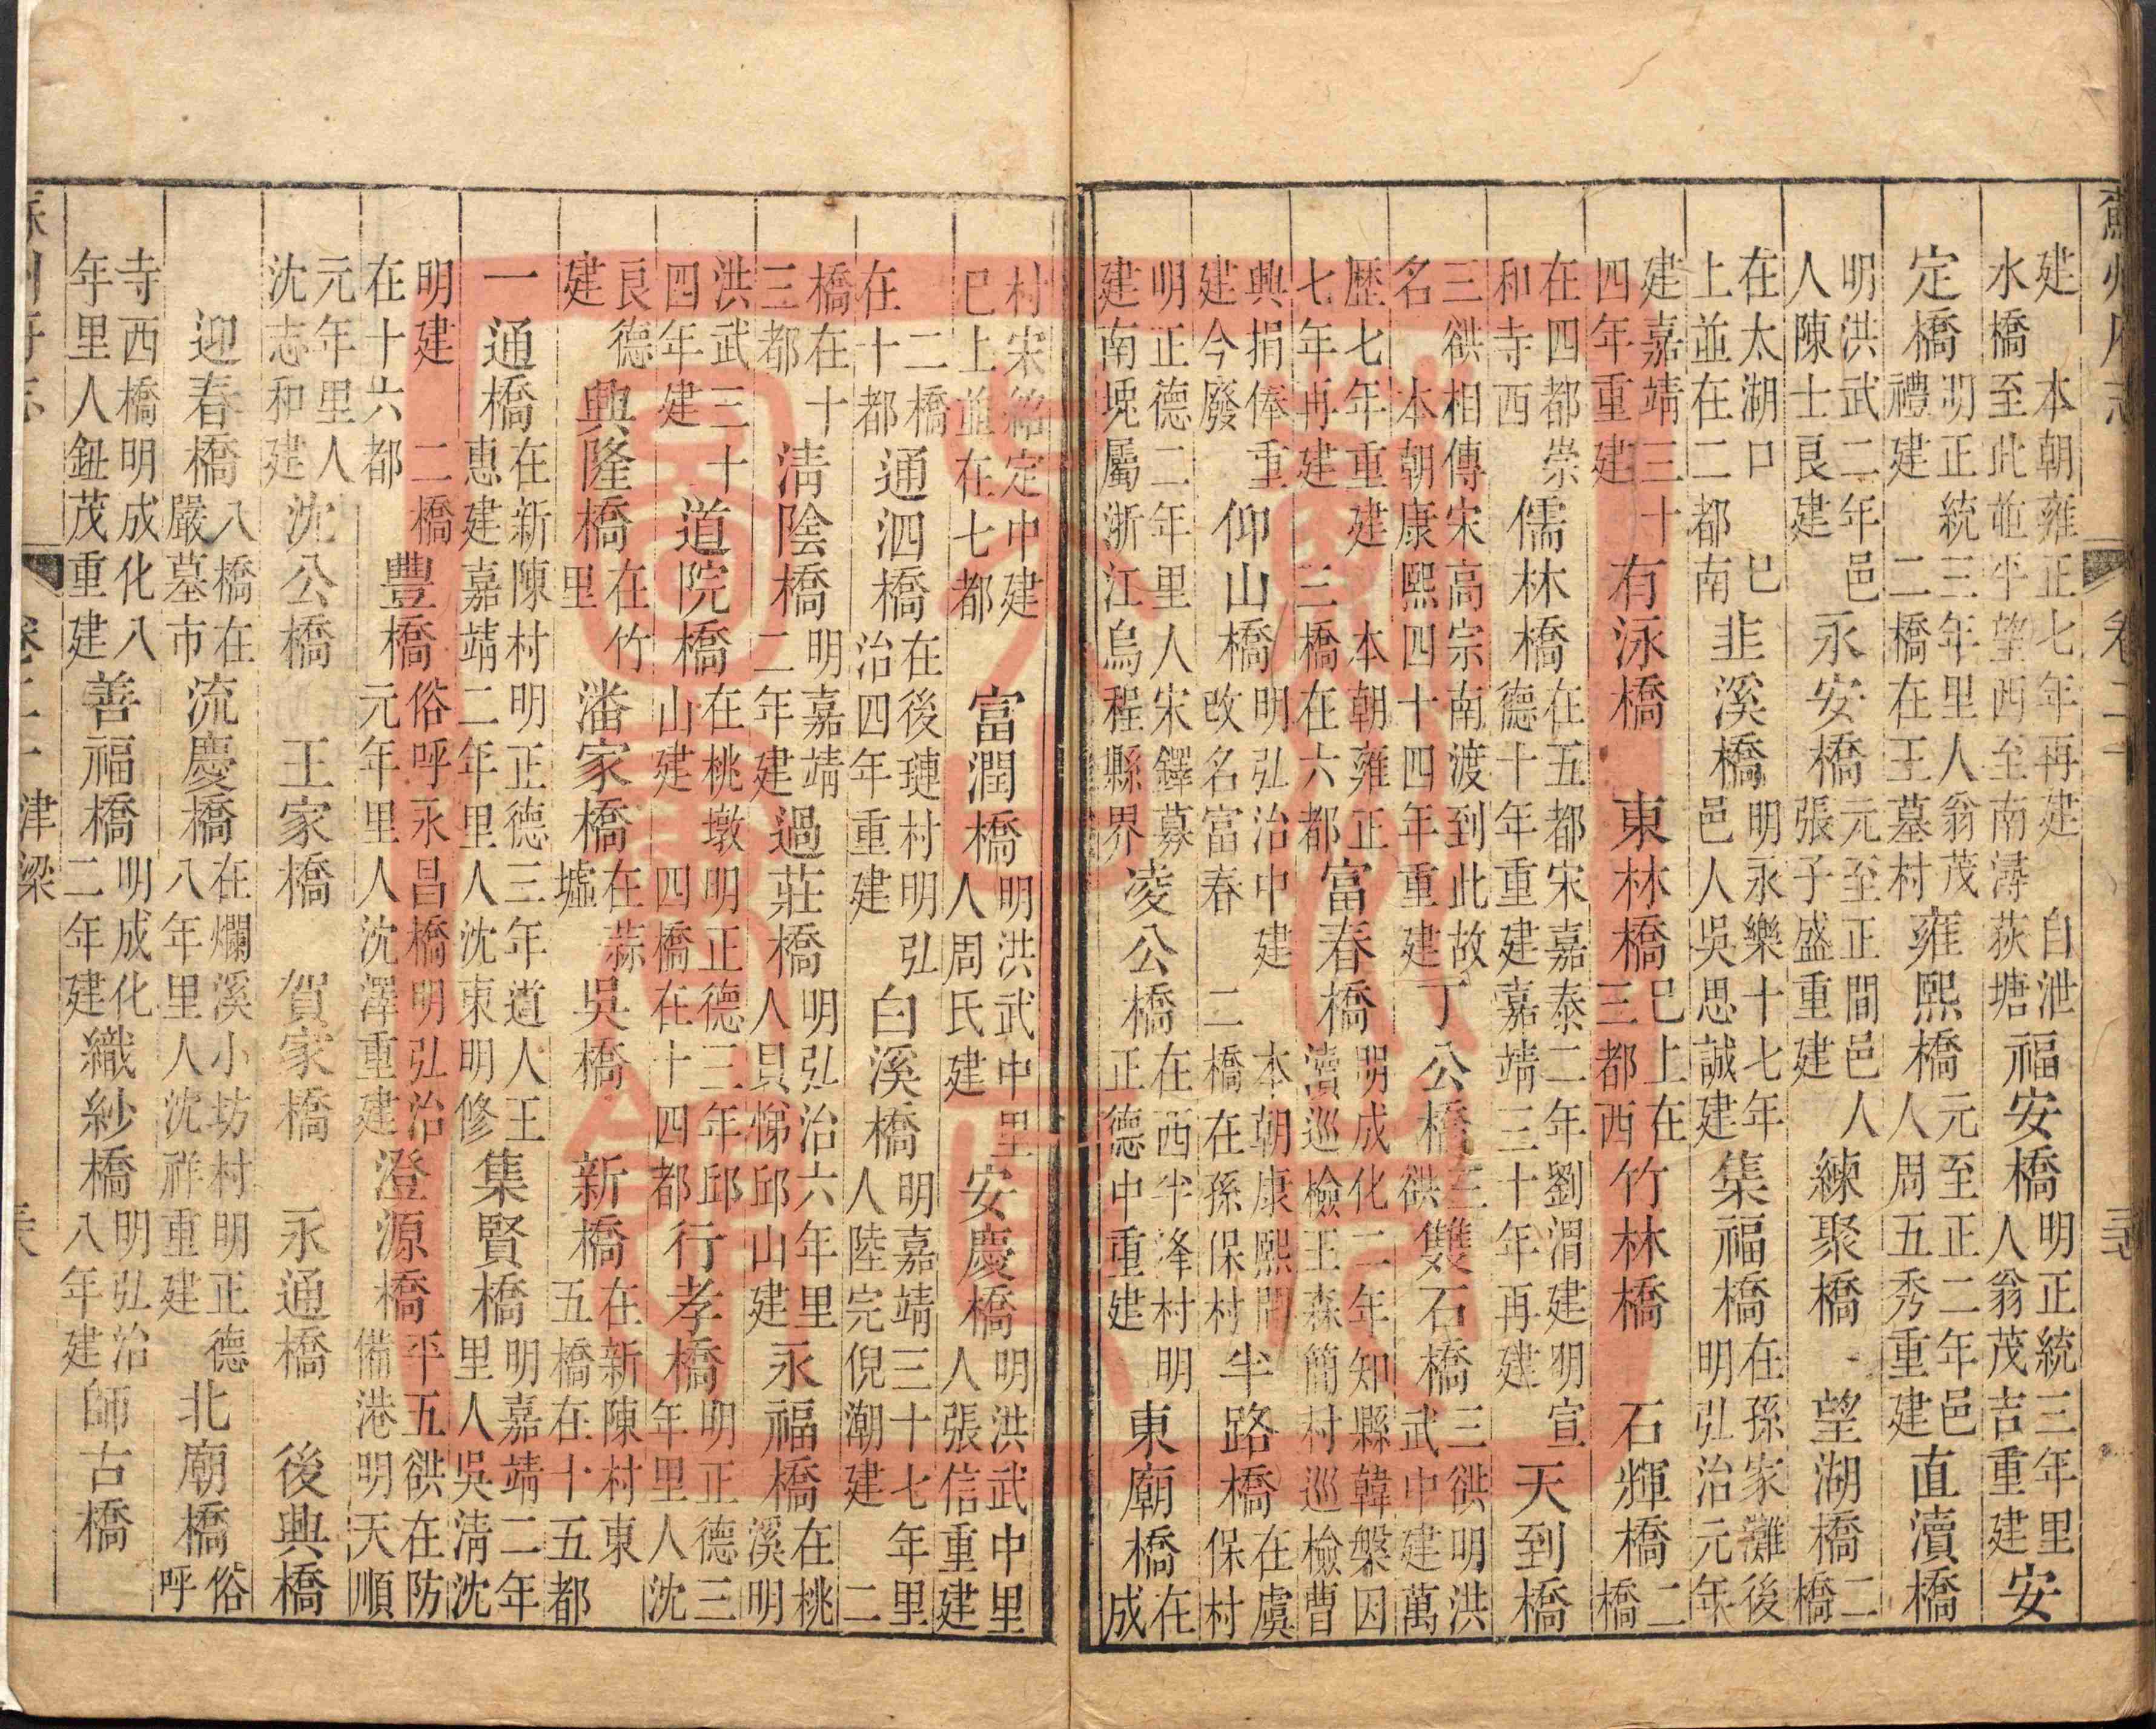 蘇州府志 卷二十
建 本朝雍正七年再建 自泄水橋至此並平望西至南潯荻塘 福安橋 明正統三年里人翁茂吉重建 安
定橋 明正統三年里人翁茂禮建 二橋在王墓村 雍熙橋 元至正二年邑人周五秀重建 直瀆橋
明洪武二年邑人陳士良建 永安橋 元至正間邑人張子盛重建 練聚橋 望湖橋 二橋
在太湖口巳上並在二都南 韭溪橋 明永樂十七年邑人吳思誠建 集福橋 在孫家灘後明弘治元年
建嘉靖三十四年重建 有泳橋 東林橋 巳上在三都西 竹林橋 石輝橋 二橋
在四都崇和寺西 儒林橋 在五都宋嘉泰二年劉渭建明宣德十年重建嘉靖三十年再建 天到橋
三谼相傳宋高宗南渡到此故名 本朝康熙四十四年重建 丁公橋 三谼 雙石橋 三谼明洪武中建萬
歷七年重建 本朝雍正七年再建 三橋在六都 富春橋 明成化二年知縣韓槃因瀆巡檢王森簡村巡檢曹
興捐俸重建今廢 仰山橋 明弘治中建改名富春 本朝康熙間二橋在孫保村 半路橋 在虞保村
明正德二年里人宋鐸募建南堍屬浙江烏程縣界 凌公橋 在西半洚村明正德中重建 東廟橋 在成
村宋紹定中建巳上並在七都 富潤橋 明洪武中里人周氏建 安慶橋 明洪武中里人張信重建
二橋在十都 通泗橋 在後璉村明弘治四年重建 白溪橋 明嘉靖三十七年里人陸完倪潮建 二
橋在十三都 清陰橋 明嘉靖二年建 過莊橋 明弘治六年里人貝悌邱山建 永福橋 在桃溪明
洪武三十四年建 道院橋 在桃墩明正德三年邱山建 四橋在十四都 行孝橋 明正德三年里人沈
良德建 興隆橋 在竹里 潘家橋 在蒜墟 吳橋 新橋 在新陳村東五橋在十五都
一通橋 在新陳村明正德三年道人王惠建嘉靖二年里人沈東明修 集賢橋 明嘉靖二年里人吳清沈
明建 二橋在十六都 豐橋 俗呼永昌橋明弘治元年里人沈澤重建 澄源橋 平五谼在防備港明天順
元年里人沈志和建 沈公橋 王家橋 賀家橋 永通橋 後興橋
迎春橋 八橋在嚴墓市 流慶橋 在爛溪小坊村明正德八年里人沈祥重建 北廟橋 俗呼
寺西橋明成化八年里人鈕茂重建 善福橋 明成化二年建 織紗橋 明弘治八年建 師古橋
津梁